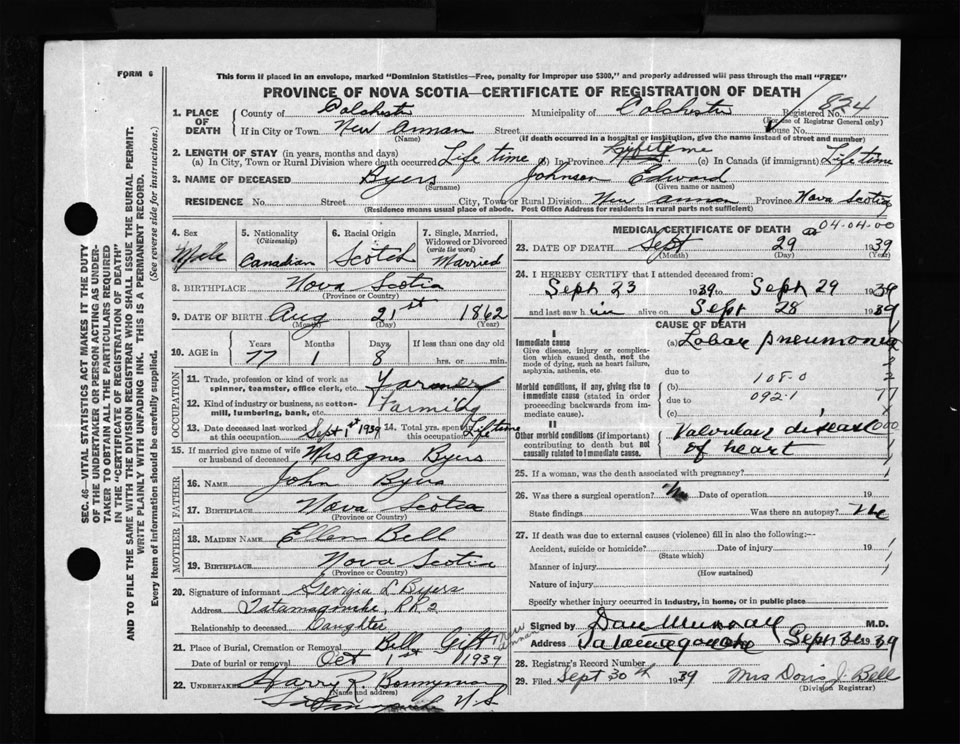 FORM 6
This form if placed in an envelope, marked "Dominion Statistics—Free, penalty for improper use $300," and properly addressed will pass through the mail "FREE"
PROVINCE OF NOVA SCOTIA—CERTIFICATE OF REGISTRATION OF DEATH
1. PLACE OF DEATH County of Colchester Municipality of Colchester Registered No. 824
(For use of Registrar General only)
If in City or Town New Annan Street House No.
(Name) (If death occurred in a hospital or institution, give the name instead of street and number)
2. LENGTH OF STAY (in years, months and days)
(a) In City, Town or Rural Division where death occurred Life time (b) In Province Lifetime (c) In Canada (if immigrant) Lifetime
3. NAME OF DECEASED Byers Johnson Edward
(Surname) (Given name or names)
RESIDENCE No. Street City, Town or Rural Division New Annan Province Nova Scotia
(Residence means usual place of abode. Post Office Address for residents in rural parts not sufficient)
4. Sex Male
5. Nationality (Citizenship) Canadian
6. Racial Origin Scotch
7. Single, Married, Widowed or Divorced (write the word) Married
8. BIRTHPLACE Nova Scotia
(Province or Country)
9. DATE OF BIRTH Aug 21st 1862
(Month) (Day) (Year)
10. AGE in Years Months Days If less than one day old
77 1 8 hrs. or min.
OCCUPATION
11. Trade, profession or kind of work as spinner, teamster, office clerk, etc. Farmer
12. Kind of industry or business, as cotton-mill, lumbering, bank, etc. Farming
13. Date deceased last worked at this occupation Sept 1st 1939 14. Total yrs. spent in this occupation Lifetime
15. If married give name of wife or husband of deceased Mrs Agnes Byers
FATHER
16. NAME John Byers
17. BIRTHPLACE Nova Scotia
(Province or Country)
MOTHER
18. MAIDEN NAME Ellen Bell
19. BIRTHPLACE Nova Scotia
(Province or Country)
20. Signature of informant Georgia L Byers
Address Tatamagouche, RR2
Relationship to deceased Daughter
21. Place of Burial, Cremation or Removal Bell Gift New Annan
Date of burial or removal Oct 1st 1939
22. UNDERTAKER Harry R. Bonnyman
(Name and address)
Tatamagouche N.S
MEDICAL CERTIFICATE OF DEATH 04-04-00
23. DATE OF DEATH Sept 29 1939
(Month) (Day) (Year)
24. I HEREBY CERTIFY that I attended deceased from:
Sept 23 1939 to Sept 29 1939
and last saw him alive on Sept 28 1939
CAUSE OF DEATH
I
Immediate cause
Give disease, injury or complication which caused death, not the mode of dying, such as heart failure, asphyxia, asthenia, etc.
(a) Lobar pneumonia
due to
Morbid conditions, if any, giving rise to immediate cause (stated in order proceeding backwards from immediate cause).
(b) 108-0
due to 092-1
(c)
II
Other morbid conditions (if important) contributing to death but not causally related to immediate cause.
Valvular disease of heart
25. If a woman, was the death associated with pregnancy?
26. Was there a surgical operation? No Date of operation 19
State findings Was there an autopsy? No
27. If death was due to external causes (violence) fill in also the following:—
Accident, suicide or homicide? Date of injury 19
(State which)
Manner of injury
(How sustained)
Nature of injury
Specify whether injury occurred in industry, in home, or in public place
Signed by Dan Murray M.D.
Address Tatamagouche Sept 30 1939
28. Registrar's Record Number
29. Filed Sept 30 1939 Mrs Doris J. Bell
(Division Registrar)
SEC. 46—VITAL STATISTICS ACT MAKES IT THE DUTY
OF THE UNDERTAKER OR PERSON ACTING AS UNDERTAKER TO OBTAIN ALL THE PARTICULARS REQUIRED
IN THE "CERTIFICATE OF REGISTRATION OF DEATH"
AND TO FILE THE SAME WITH THE DIVISION REGISTRAR WHO SHALL ISSUE THE BURIAL PERMIT.
WRITE PLAINLY WITH UNFADING INK. THIS IS A PERMANENT RECORD.
Every item of information should be carefully supplied. (See reverse side for instructions.)